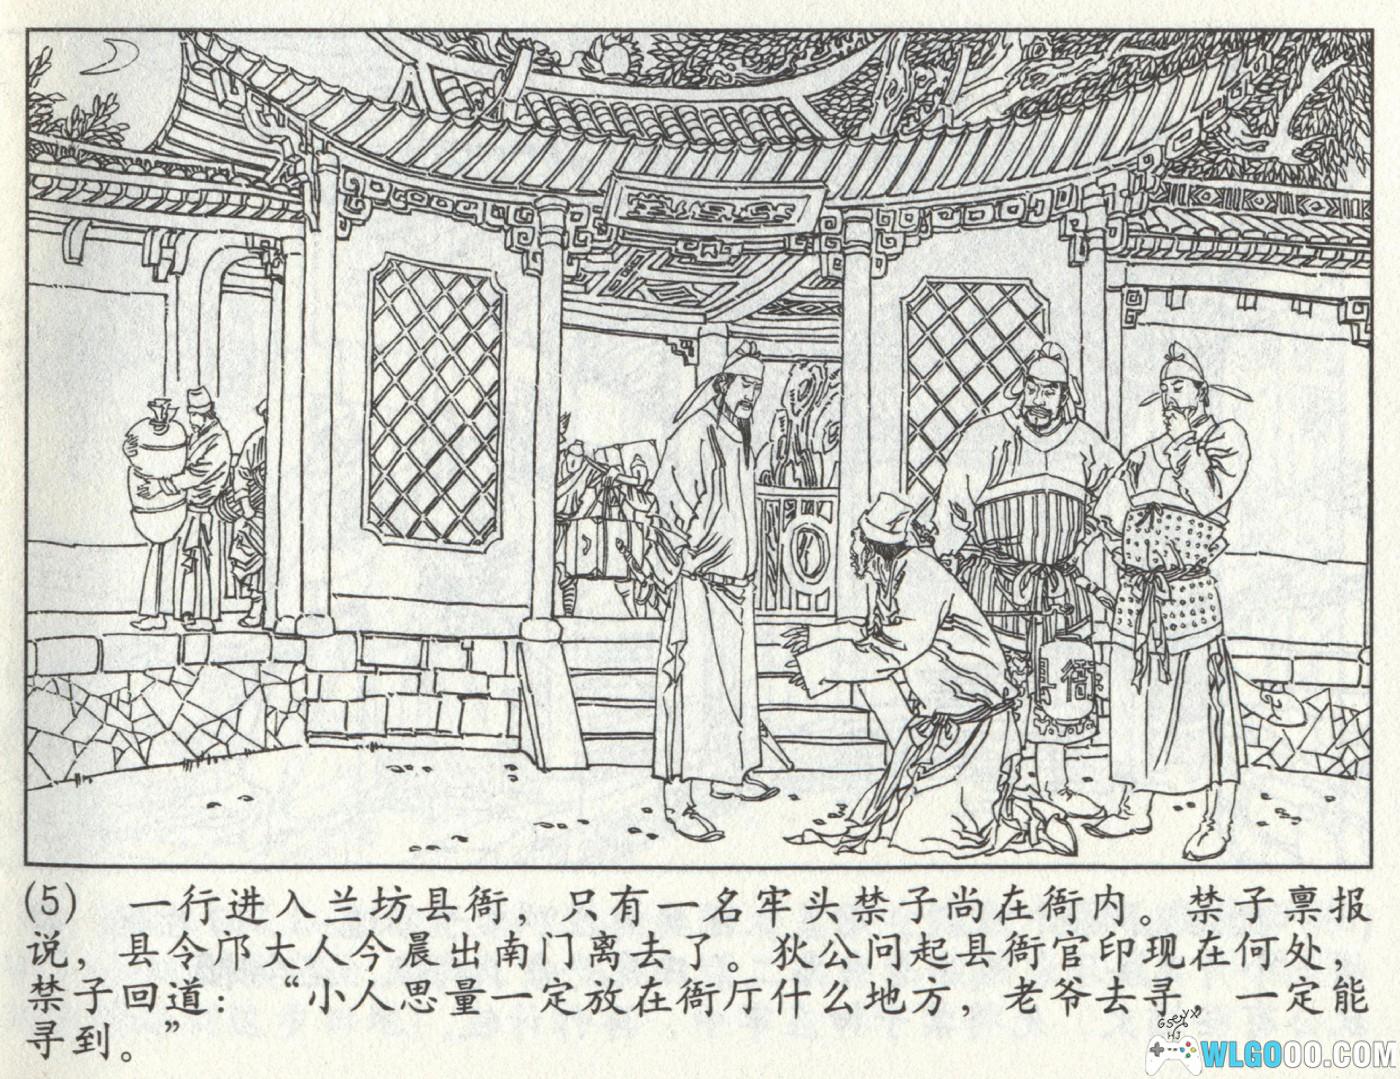 縣衙
(5) 一行进入兰坊县衙，只有一名牢头禁子尚在衙内。禁子禀报
说，县令邝大人今晨出南门离去了。狄公问起县衙官印现在何处，
禁子回道：“小人思量一定放在衙厅什么地方，老爷去寻，一定能
寻到。”
WLGOOO.COM